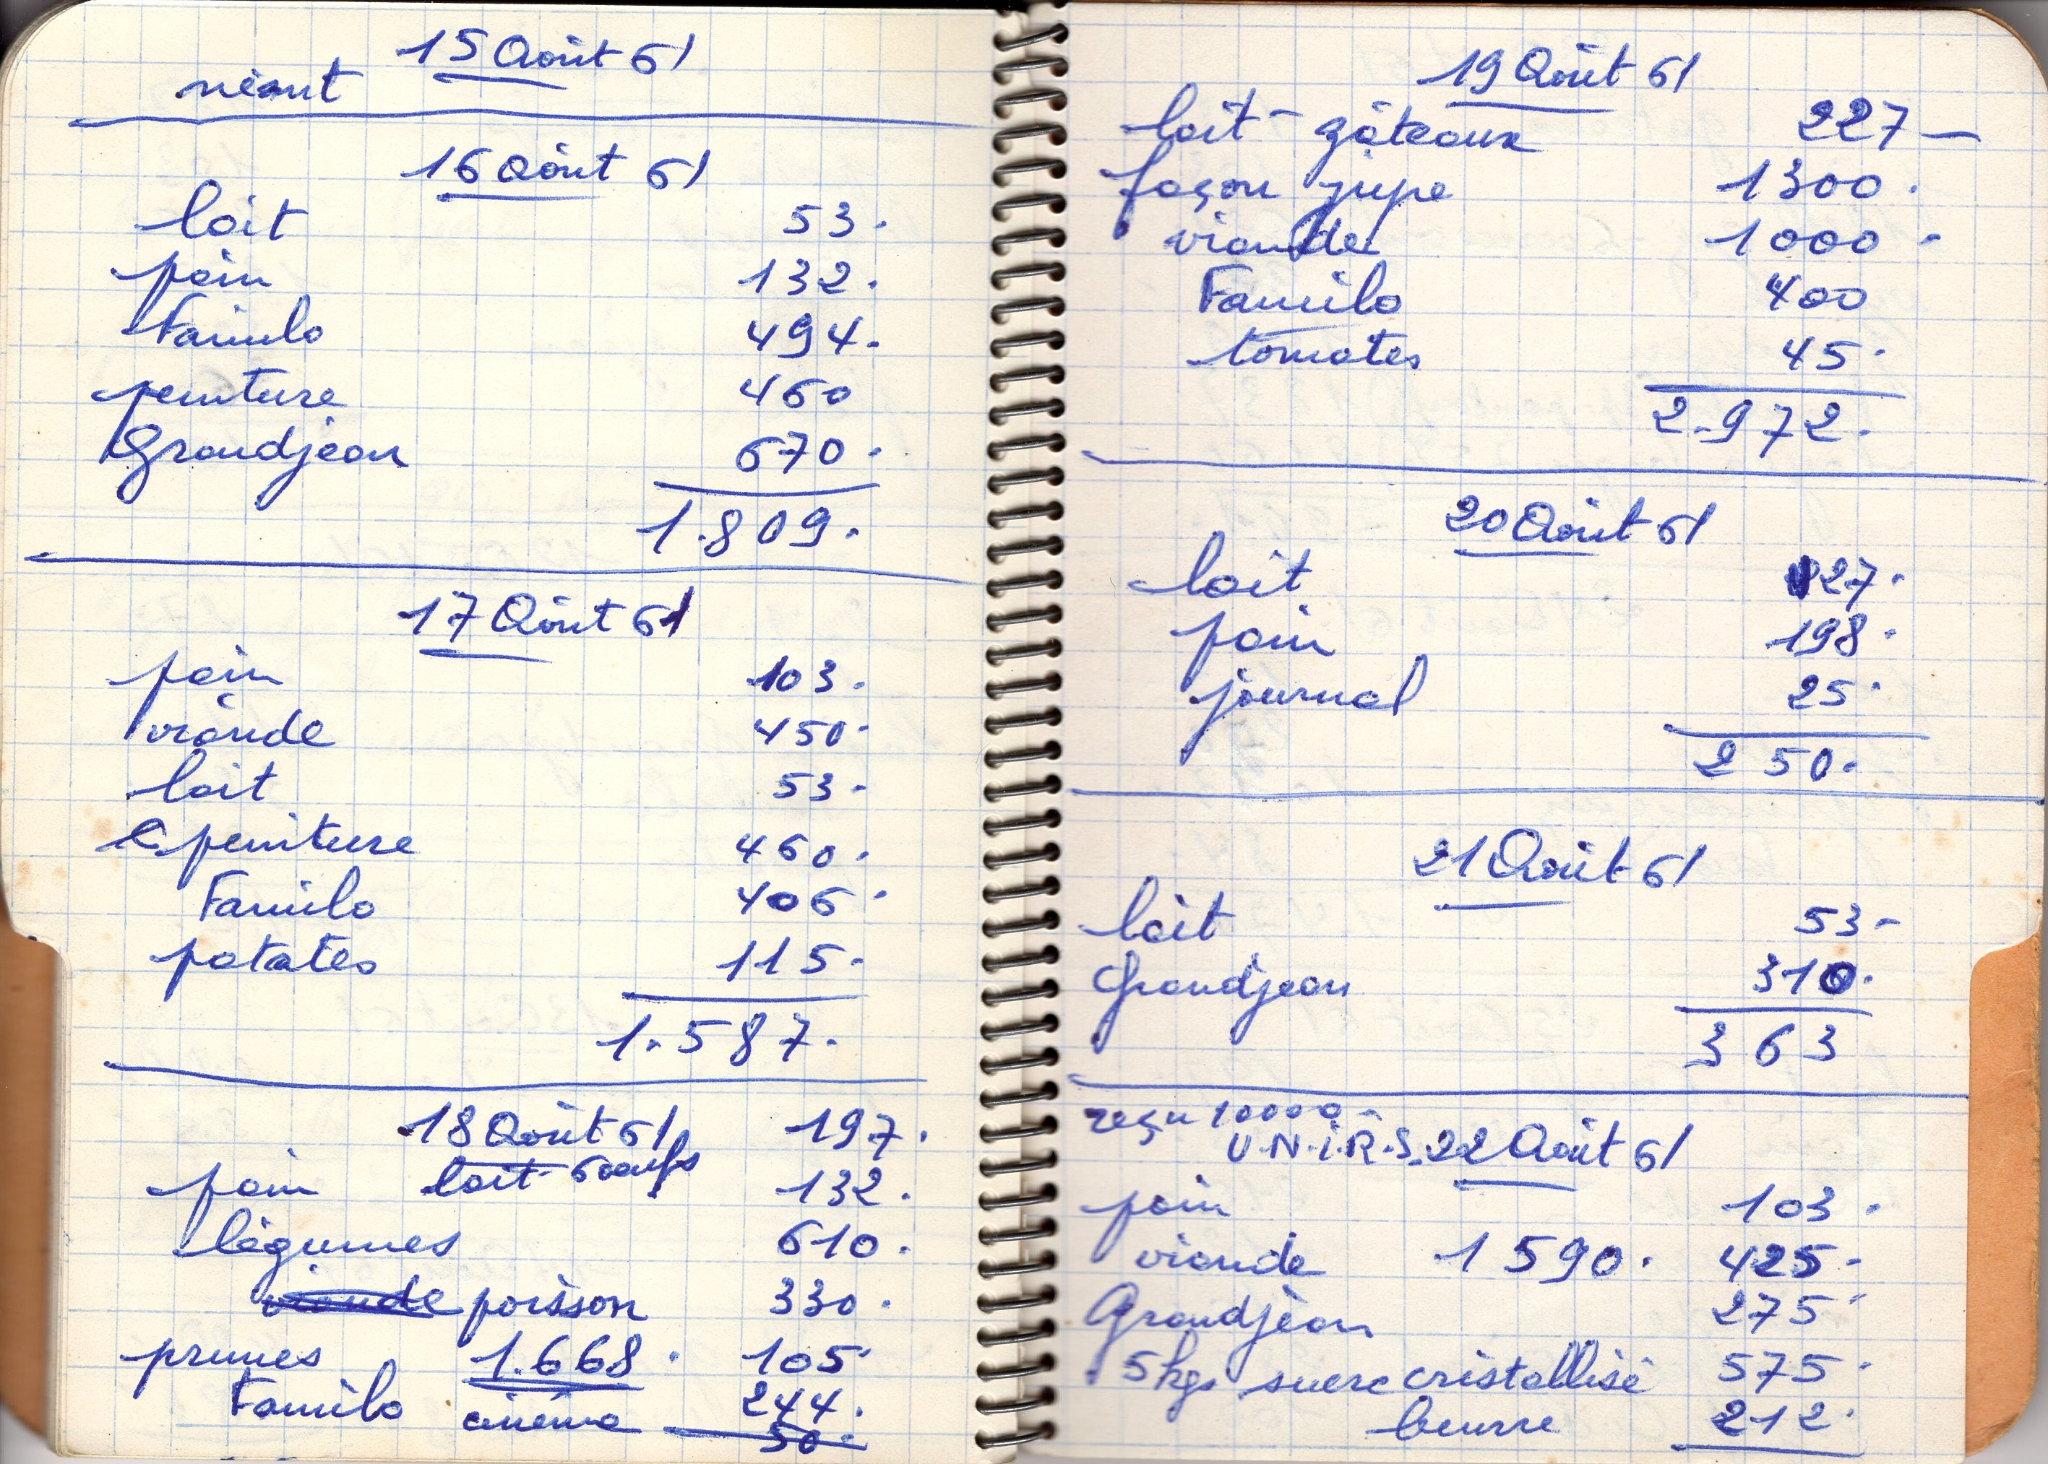 15 Août 61
néant
16 Août 61
lait 53.
pain 132.
Familo 494.
peinture 460
Grandjean 670.
1.809.
17 Août 61
pain 103.
viande 450.
lait 53.
peinture 460.
Familo 406.
patates 115.
1.587.
18 Août 61 197.
lait 6 oeufs
pain 132.
légumes 610.
viande poisson 330.
prunes 1.668. 105.
Familo 244.
cinéma 50.
19 Août 61
lait - gâteaux 227 -
façon jupe 1300.
viande 1000 -
Familo 400
tomates 45.
2.972.
20 Août 61
lait 27.
pain 198.
journal 25.
250.
21 Août 61
lait 53 -
Grandjean 310.
363
reçu 10000 -
U.N.I.R.S. 22 Août 61
pain 103.
viande 1590. 425 -
Grandjean 275
5 kgs sucre cristallisé 575.
beurre 212.